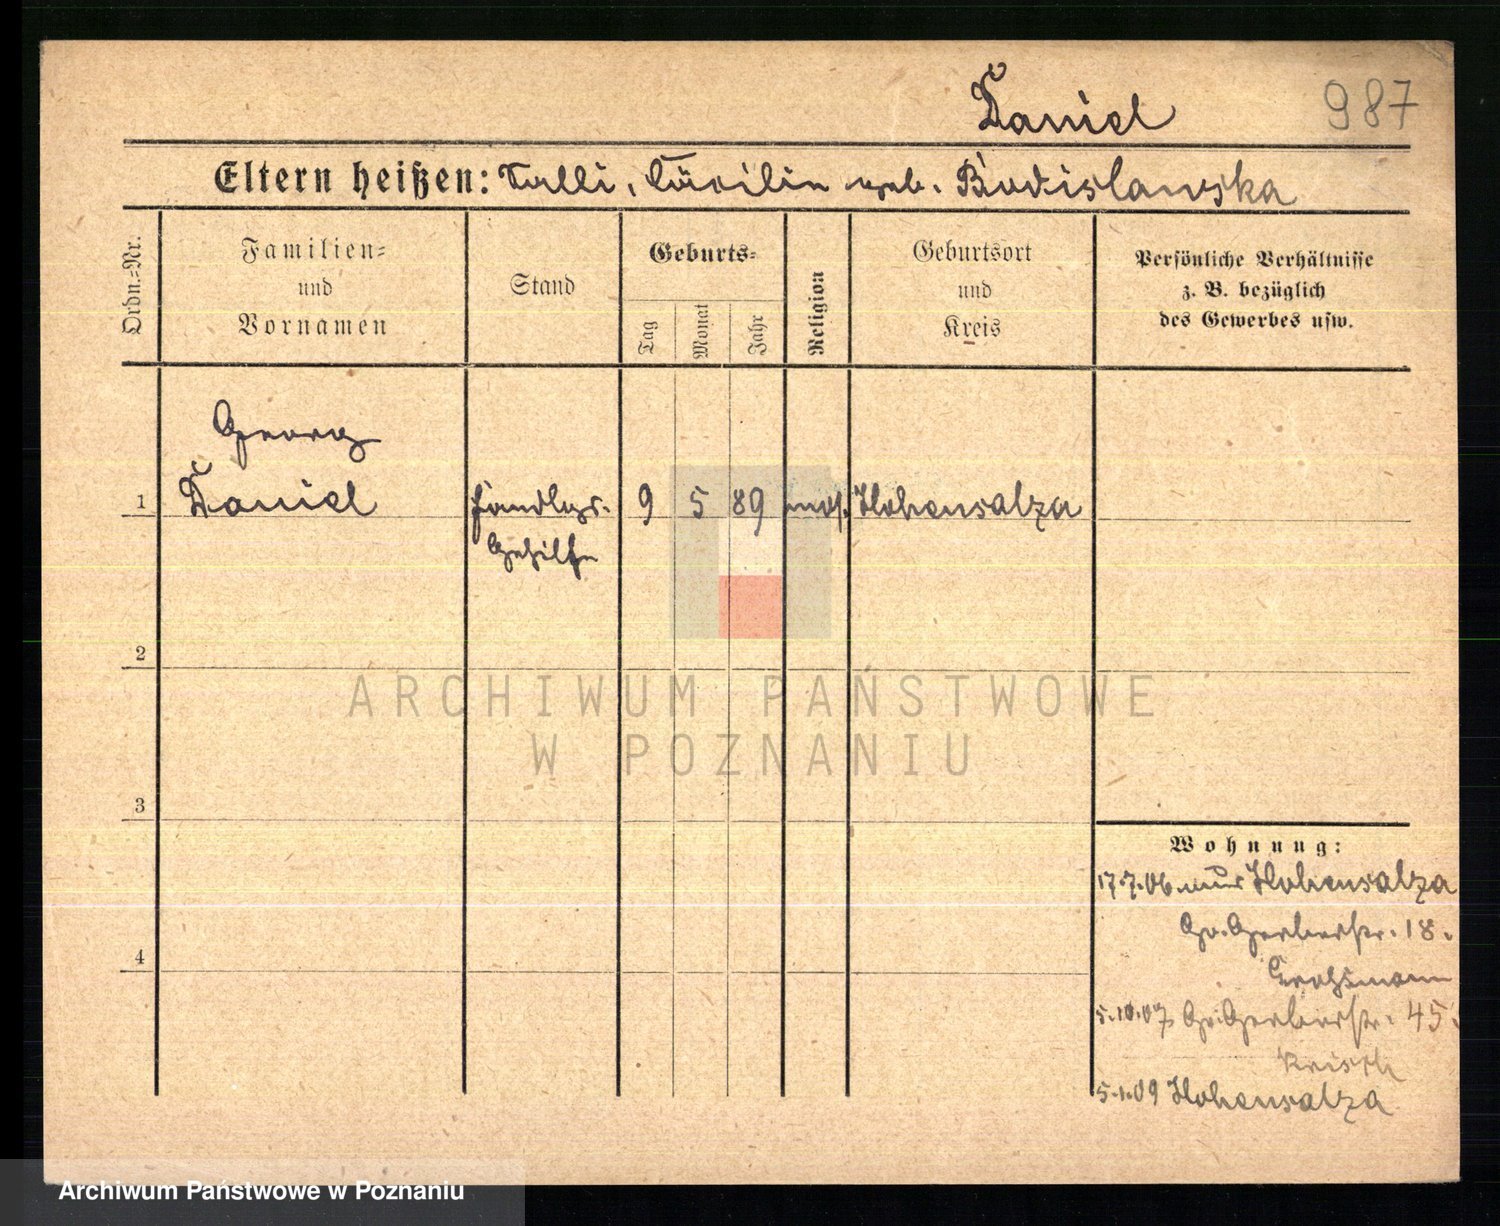 Daniel 987
Eltern heißen: Salli, Cäcilie geb. Bodislawska
Ordn.-Nr.
Familien- und Vornamen
Stand
Geburts-
Tag
Monat
Jahr
Religion
Geburtsort und Kreis
Persönliche Verhältnisse
z. B. bezüglich
des Gewerbes usw.
Georg
1 Daniel Handlgs. 9 5 89 mos. Hohensalza
Gehilfe
2
ARCHIWUM PAŃSTWOWE
W POZNANIU
3
Wohnung:
17.7.06 Hohensalza
Gr. Gerberstr. 18.
4
5.10.07 Gr. Gerberstr. 45.
5.1.09 Hohensalza
Archiwum Państwowe w Poznaniu